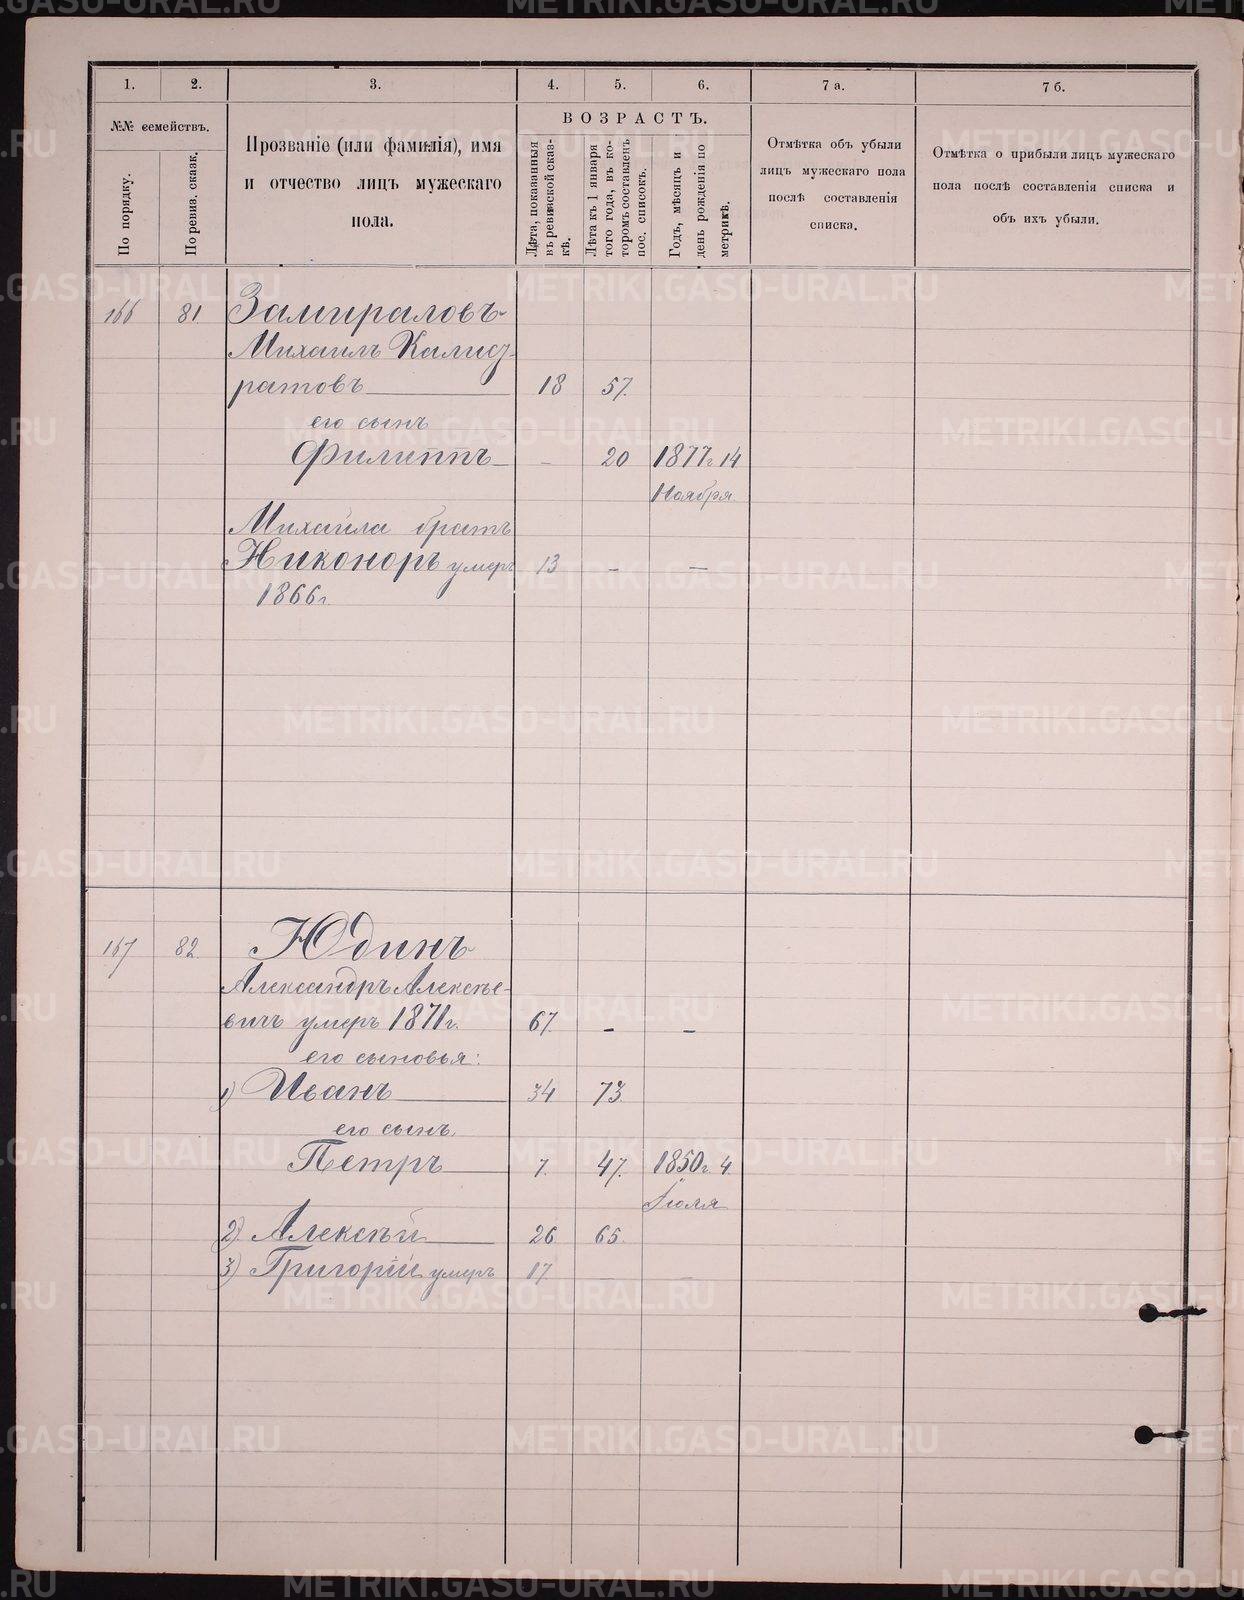 1. 2. 3. 4. 5. 6. 7 а. 7 б.
№№ семействъ.
По порядку.
По ревиз. сказк.
Прозваніе (или фамилія), имя
и отчество лицъ мужескаго
пола.
ВОЗРАСТЪ.
Лѣта, показанныя
въ ревизской сказ-
кѣ.
Лѣта къ 1 января
того года, въ ко-
торомъ составленъ
пос. списокъ.
Годъ, мѣсяцъ и
день рожденія по
метрикѣ.
Отмѣтка объ убыли
лицъ мужескаго пола
послѣ составленія
списка.
Отмѣтка о прибыли лицъ мужескаго
пола послѣ составленія списка и
объ ихъ убыли.
166 81. Замираловъ
Михаилъ Калист-
ратовъ 18 57.
его сынъ
Филиппъ - 20 1877г. 14
Ноября.
Михаила братъ
Никоноръ умеръ 13 - -
1866г.
167 82. Юдинъ
Александръ Алексѣе-
вичъ умеръ 1871г. 67. - -
его сыновья:
1) Иванъ 34 73.
его сынъ
Петръ 7. 47. 1850г. 4.
Іюля
2) Алексѣй 26 65.
3) Григорій умеръ 17. - -
METRIKI.GASO-URAL.RU